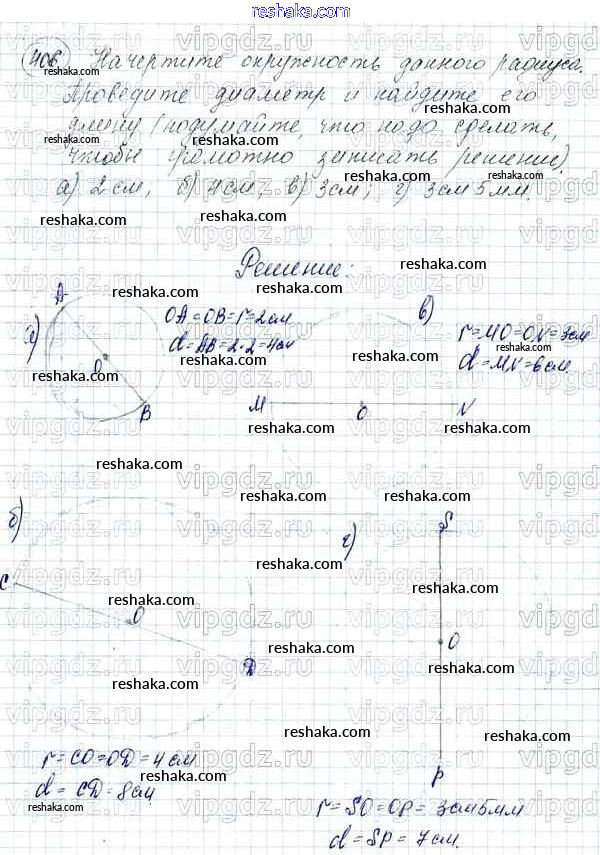 reshaka.com
406 Начертите окружность данного радиуса.
Проведите диаметр и найдите его
длину (подумайте, что надо сделать,
чтобы грамотно записать решение).
а) 2 см, б) 4 см, в) 3 см; г) 3 см 5 мм.
Решение:
а)
A
O
B
OA=OB=r=2см
d=AB=2·2=4см
в)
r=MO=ON=3см
d=MN=6см
M O N
б)
C
O
D
r=CO=OD=4см
d=CD=8см
г)
S
O
P
r=SO=OP=3см5мм
d=SP=7см.
vipgdz.ru
reshaka.com